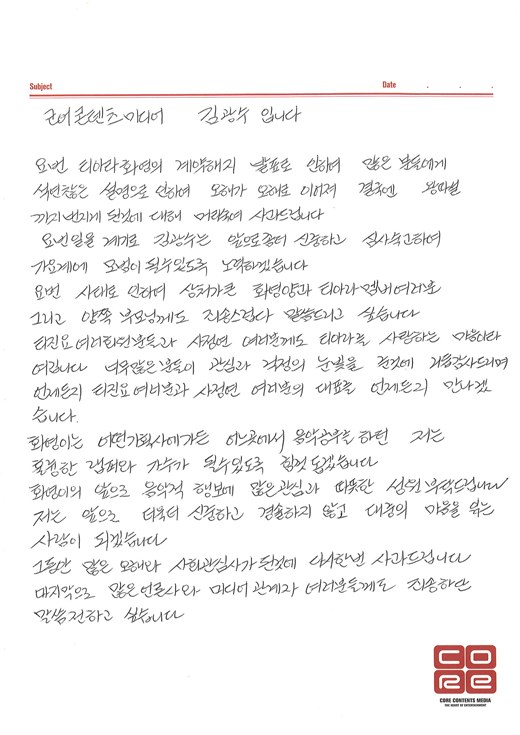 Subject
Date . . .
코어콘텐츠미디어 김광수 입니다
요번 티아라화영의 계약해지 발표로 인하여 많은 분들에게
석연찮은 설명으로 인하여 오해가 오해로 이어져 결국엔 왕따설
까지 번지게 된것에 대해 머리숙여 사과드립니다
요번일을 계기로 김광수는 앞으로좀더 신중하고 심사숙고하여
가요계에 모범이 될수있도록 노력하겠습니다
요번 사태로 인하여 상처가큰 화영양과 티아라멤버여러분
그리고 양쪽 부모님께도 죄송스럽다 말씀드리고 싶습니다
티진요여러회원분들과 사정연 여러분께도 티아라를 사랑하는 마음이라
여깁니다 너무많은분들이 관심과 걱정의 눈빛을 준것에 거듭감사드리며
언제든지 티진요여러분과 사정연 여러분의 대표를 언제든지 만나겠
습니다.
화영이는 어떤기획사에가든 어느곳에서 음악공부를 하던 저는
훌륭한 랩퍼와 가수가 될수있도록 힘껏 돕겠습니다
화영이의 앞으로 음악적 행보에 많은관심과 따뜻한 성원 부탁드립니다
저는 앞으로 더욱더 신중하고 경솔하지 않고 대중의 마음을 읽는
사람이 되겠습니다
그동안 많은 오해와 사회관심사가 된것에 다시한번 사과드립니다
마지막으로 많은언론사와 미디어 관계자 여러분들께도 죄송하단
말씀전하고 싶습니다
CORE
CORE CONTENTS MEDIA
THE HEART OF ENTERTAINMENT